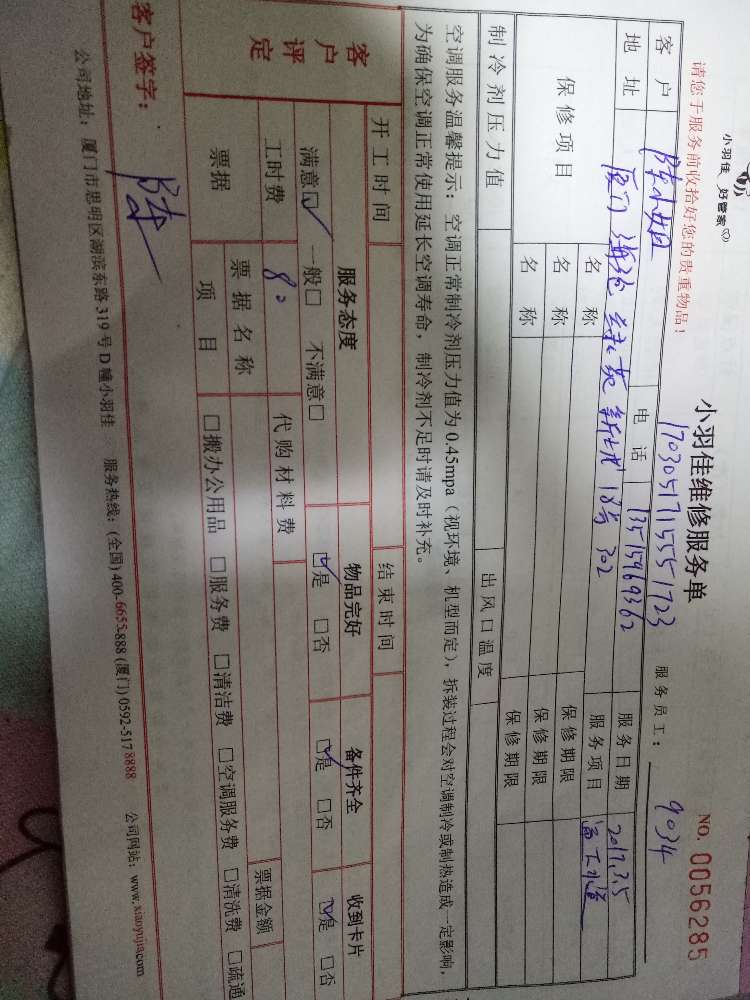 小羽佳 好管家
小羽佳维修服务单
NO. 0056285
请您于服务前收拾好您的贵重物品！
17030517115551723
服务员工： 9034
客户 陈小姐 电话 13515969362 服务日期 2017.3.5
地址 厦门 海沧 绿苑新城 18号 302 服务项目
保修项目 名称 保修期限
名称 保修期限
名称 保修期限
制冷剂压力值 出风口温度
空调服务温馨提示：空调正常制冷剂压力值为0.45mpa（视环境、机型而定），拆装过程会对空调制冷或制热造成一定影响，
为确保空调正常使用延长空调寿命，制冷剂不足时请及时补充。
开工时间 结束时间
客户评定 服务态度 物品完好 备件齐全 收到卡片
满意☑ 一般□ 不满意□ ☑是 □否 ☑是 □否 ☑是 □否
工时费 80 代购材料费
票据 票据名称 票据金额
项目 □搬办公用品 □服务费 □清洁费 □空调服务费 □清洗费 □疏通
客户签字： 陈
公司地址：厦门市思明区湖滨东路319号D幢小羽佳 服务热线：(全国)400-6655-888 (厦门)0592-5178888 公司网站：www.xiaoyujia.com